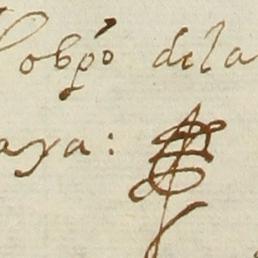 obpo dela
aya: